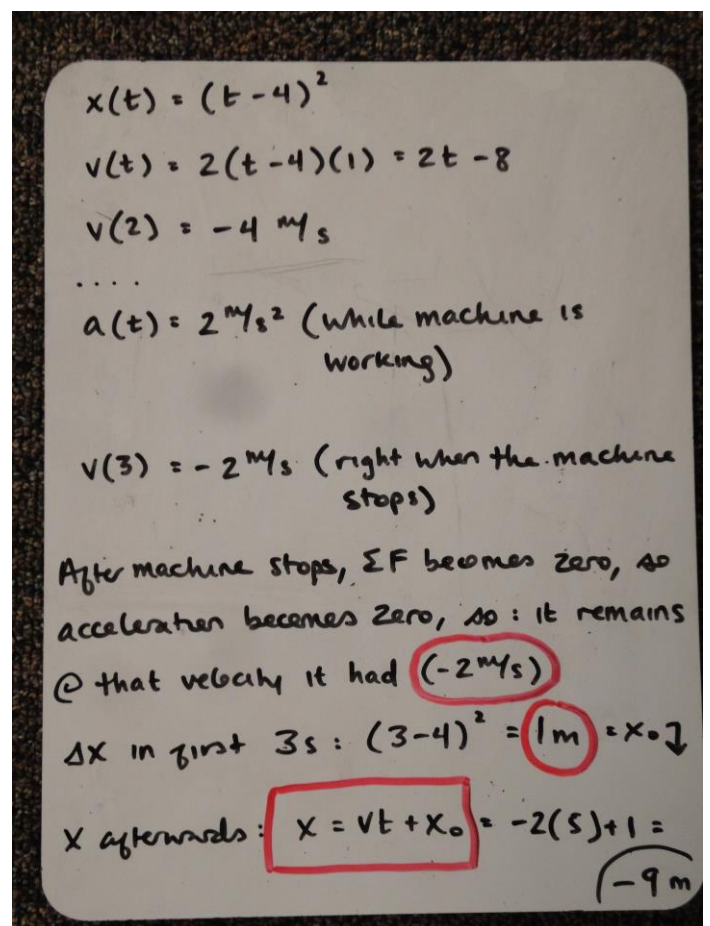 x(t) = (t-4)²
v(t) = 2(t-4)(1) = 2t-8
v(2) = -4 m/s
....
a(t) = 2 m/s² (while machine is
working)
v(3) = -2 m/s (right when the machine
stops)
After machine stops, ΣF becomes zero, so
acceleration becomes zero, so: it remains
@ that velocity it had (-2 m/s)
Δx in first 3s: (3-4)² = 1m = x₀ ↴
X afterwards: x = vt + x₀ = -2(5)+1 =
-9 m